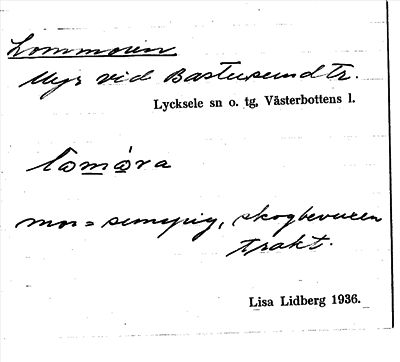 Lommoren
Myr vid Bastusund tr.
Lycksele sn o. tg, Västerbottens l.
lomóra
mor = sumpig, skogbevuxen
trakt.
Lisa Lidberg 1936.